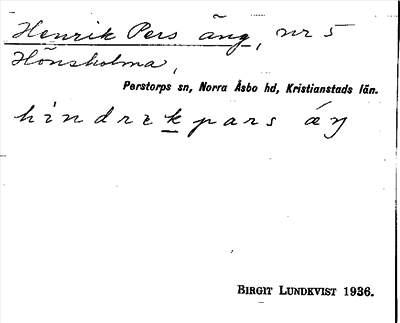 Henrik Pers äng, nr 5
Hönsholma,
Perstorps sn, Norra Åsbo hd, Kristianstads län.
hindrek pars äŋ
BIRGIT LUNDKVIST 1936.